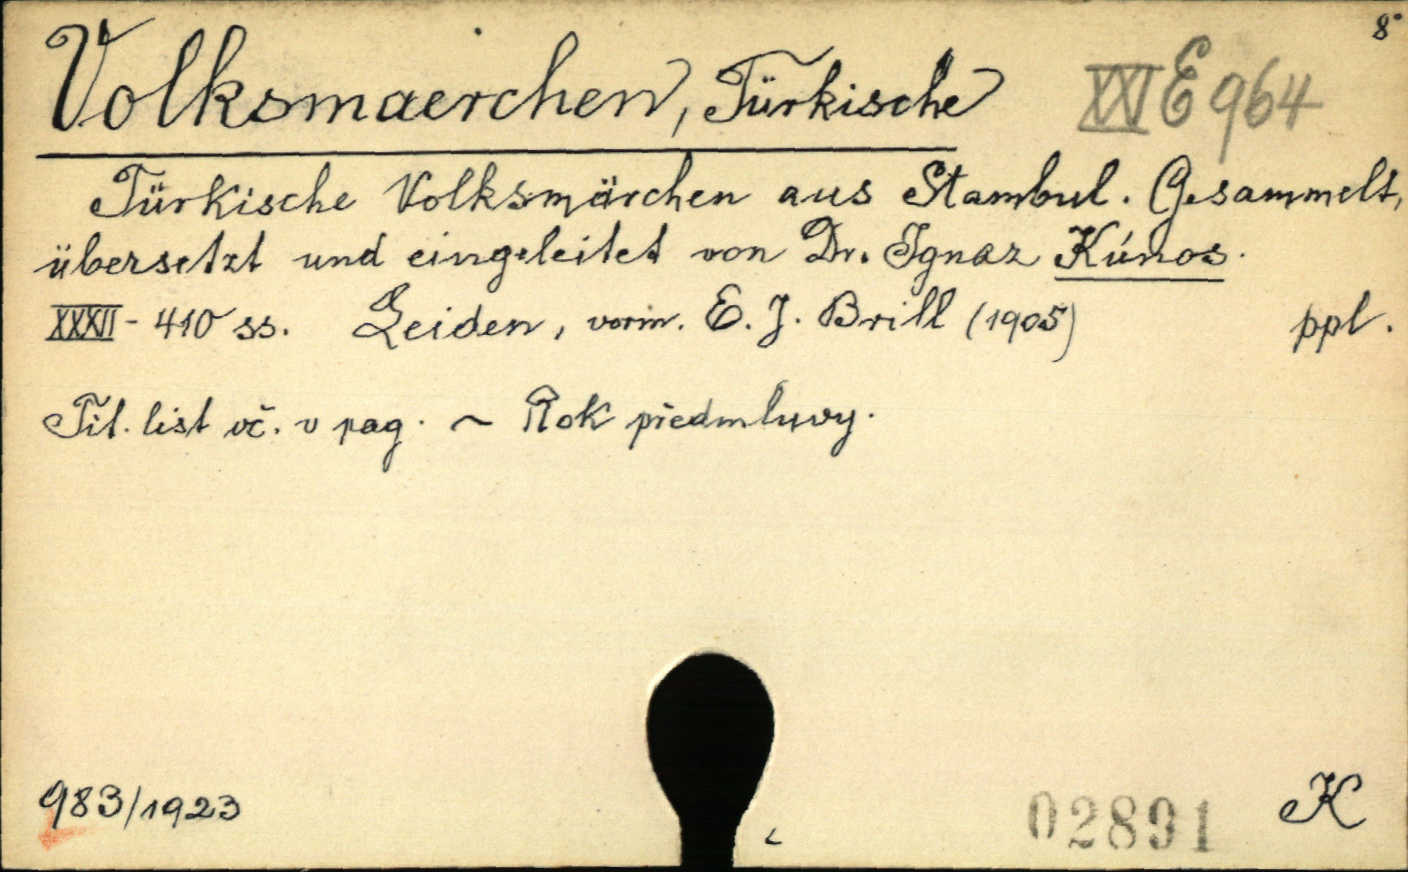 8°
Volksmaerchen, Türkische XXI E 964
Türkische Volksmärchen aus Stambul. Gesammelt,
übersetzt und eingeleitet von Dr. Ignaz Kúnos.
XXXII - 410 ss. Leiden, vorm. E. J. Brill (1905) ppl.
Tit. list vč. v pag. ~ Rok předmluvy.
983/1923 02891 K